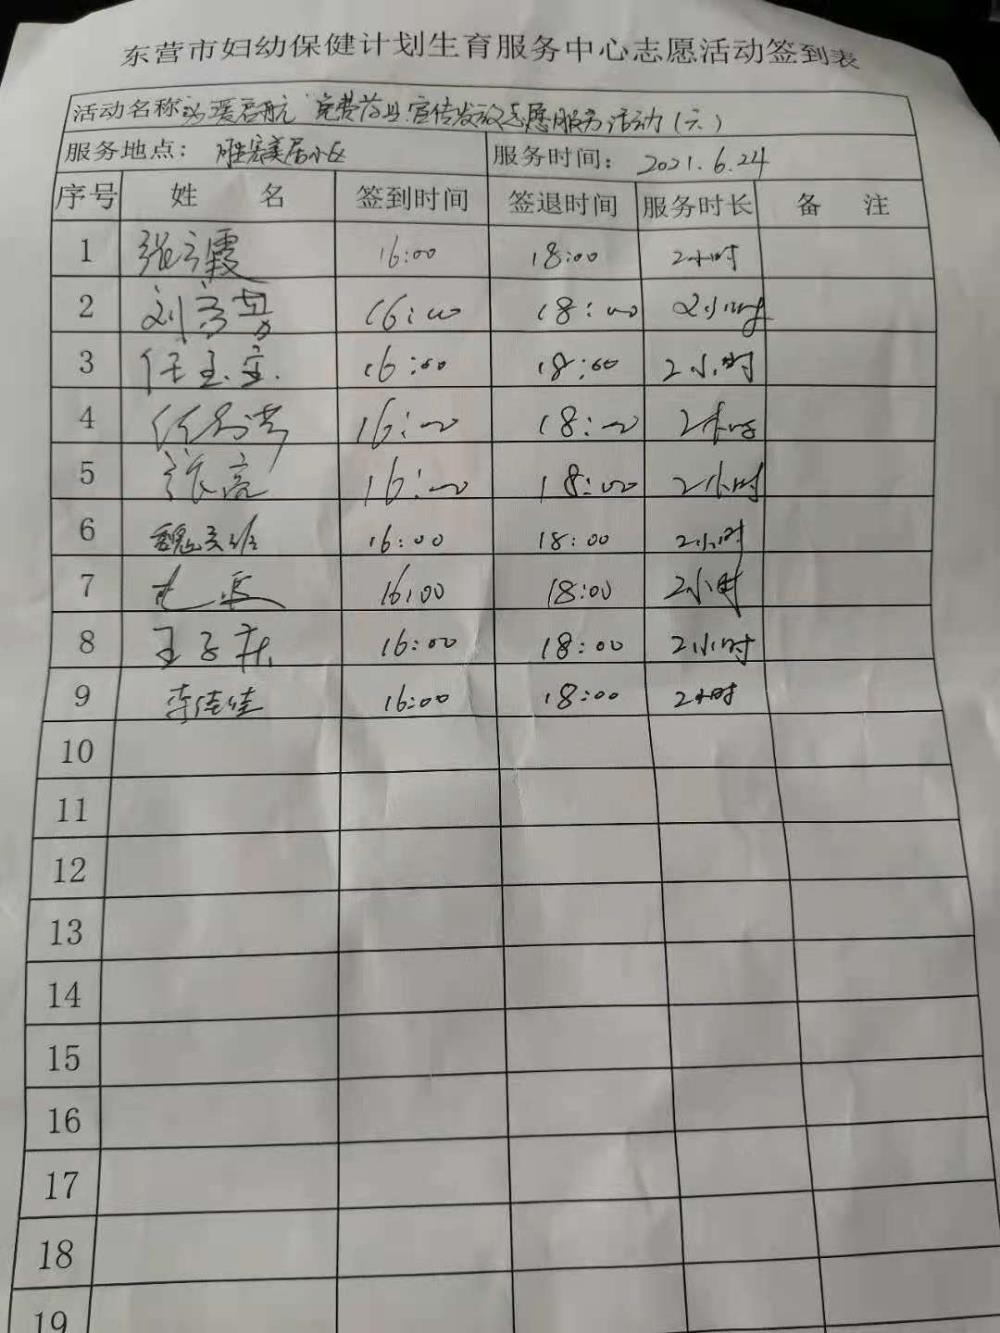 东营市妇幼保健计划生育服务中心志愿活动签到表
活动名称 启航 免费药具宣传发放志愿服务活动(六)
服务地点: 小区 服务时间: 2021.6.24
序号 姓 名 签到时间 签退时间 服务时长 备 注
1 霞 16:00 18:00 2小时
2 刘 16:00 18:00 2小时
3 任玉宝 16:00 18:00 2小时
4 任 16:00 18:00 2小时
5 张亮 16:00 18:00 2小时
6 魏 16:00 18:00 2小时
7 16:00 18:00 2小时
8 王子 16:00 18:00 2小时
9 李佳佳 16:00 18:00 2小时
10
11
12
13
14
15
16
17
18
19